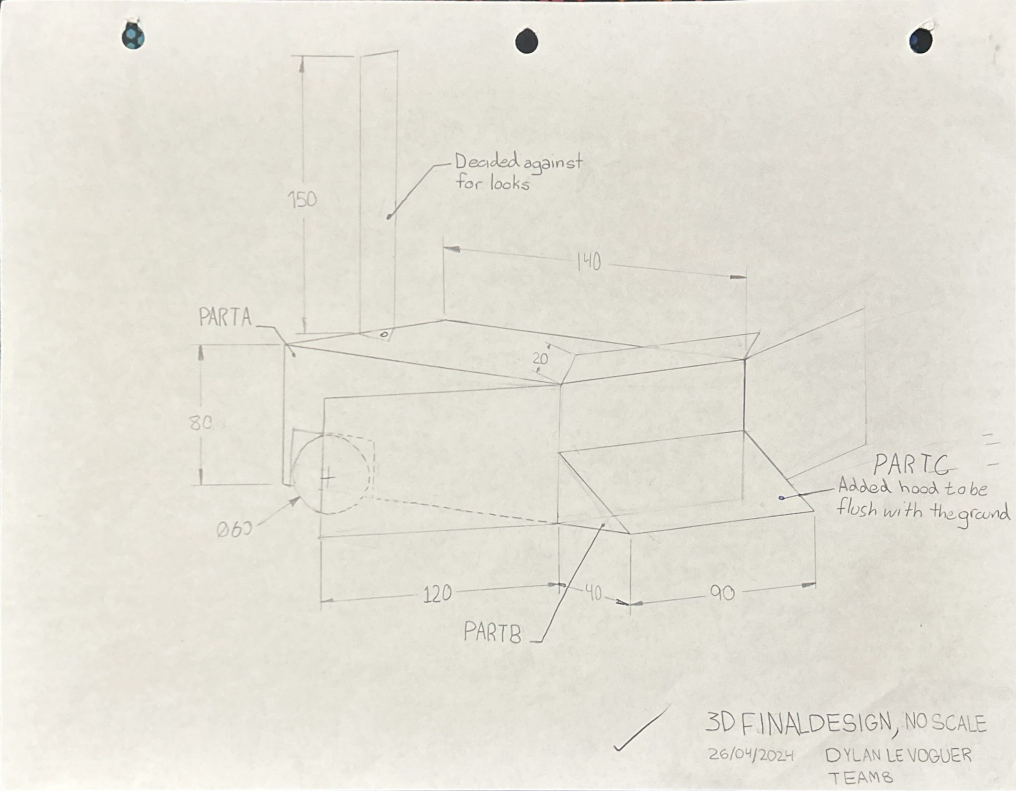 Decided against
for looks
150
140
PARTA
20
80
PARTC
Added hood to be
flush with the ground
Ø60
120
40
90
PARTB
3D FINAL DESIGN, NO SCALE
26/04/2024 DYLAN LEVOGUER
TEAM8